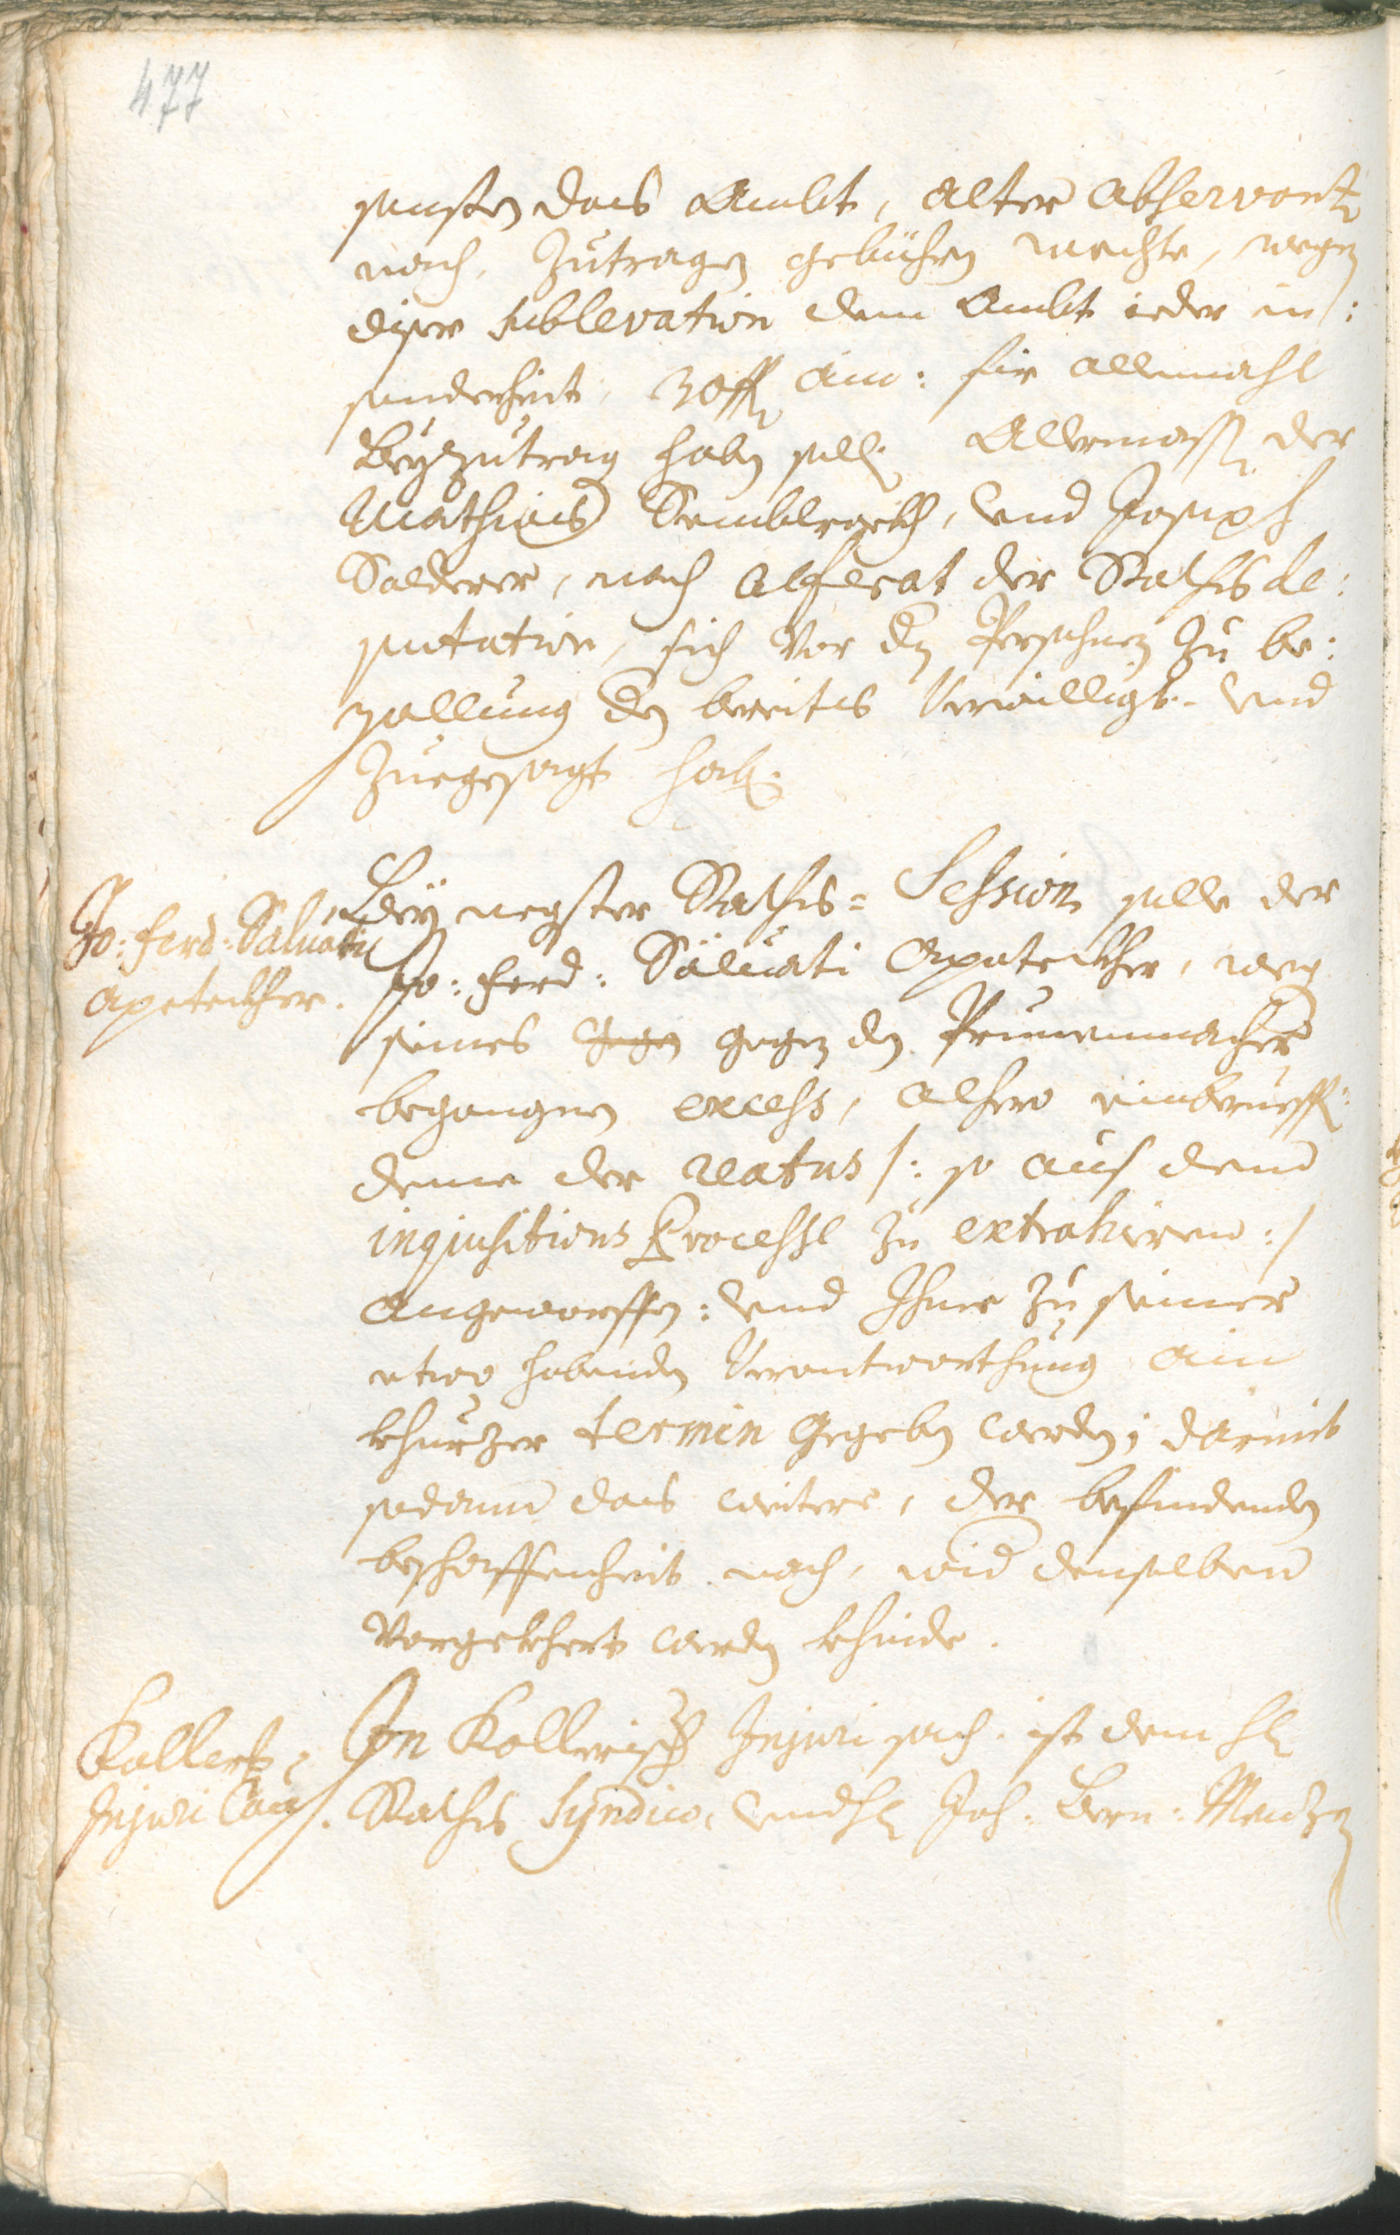 477
sonsten das Ambt, alter Observantz
nach, Zutragen gebühren mechte, wegen
diser sublevation dem Ambt ieder in¦:
sonderheit, 30 fl ain: für allemahl
Beyzutrag haben solle, Allermassen der
Mathias Semblrockh, und Joseph
Salderer, nach Ablesat der Raths de:
putation, sich vor den Persohnen zu be:
zallung den bereits Verwilligt- und
Zuegesagt habe.
Jo: Ferd: Saluati
Apoteckher.
Bey negster Raths= Session solle der
Jo: Ferd: Säluati Apoteckher, wegen
seines gegen gegen den Prunenmacher
begangnen excess, alhero einberueffen:
deme der reatus /: so aus dem
inquisitions Processe zu extrahiren :/
angeworffen: und Ihme zu seiner
etwo habenden Verantworthung ain
khurzer termin gegeben werden; damit
sodann das weitere, der befindenden
beschaffenheit nach, wid denselben
Vorgekhert werden khinde.
Kollers
Injuri Caus.
In Kollerisch Injuri sach. ist dem H:
Raths Syndico, und H: Joh: Bern: Menz